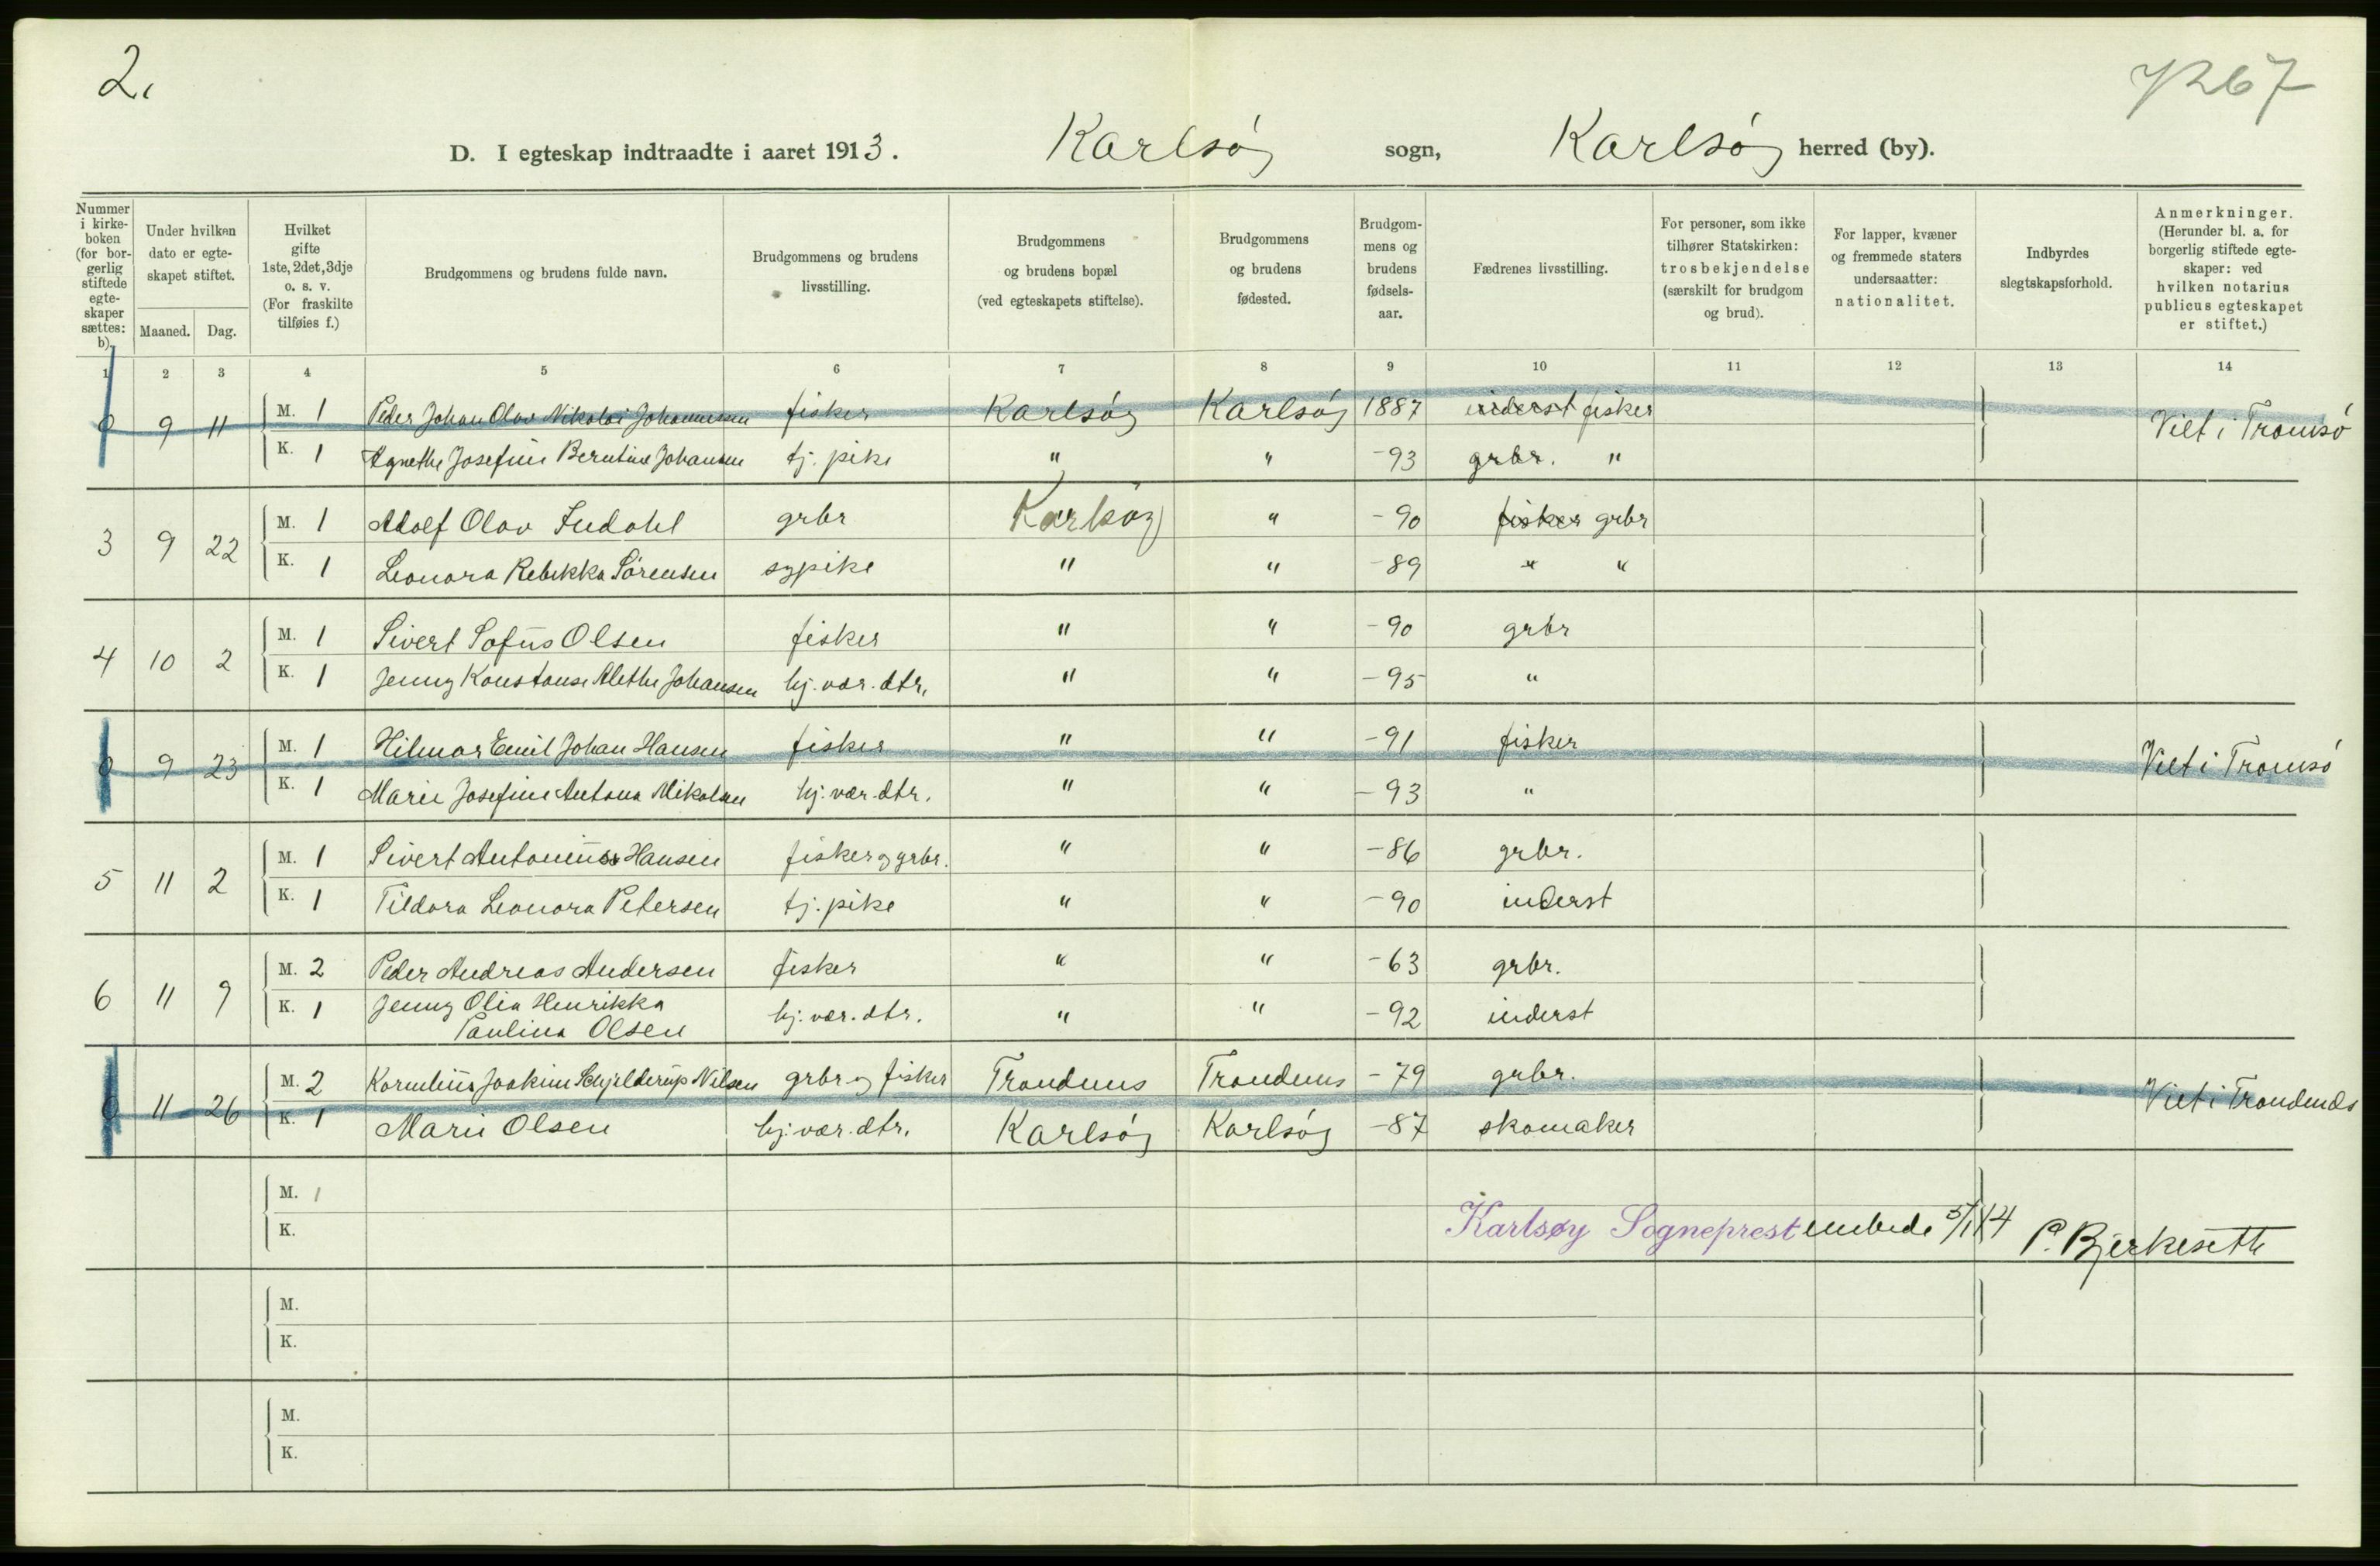 2.
7267
D. I egteskap indtraadte i aaret 1913. Karlsøy sogn, Karlsøy herred (by).
Nummer i kirke-boken (for bor-gerlig stiftede egte-skaper sættes: b).
Under hvilken dato er egte-skapet stiftet.
Maaned. Dag.
Hvilket gifte 1ste, 2det, 3dje o. s. v. (For fraskilte tilføies f.)
Brudgommens og brudens fulde navn.
Brudgommens og brudens livsstilling.
Brudgommens og brudens bopæl (ved egteskapets stiftelse).
Brudgommens og brudens fødested.
Brudgom-mens og brudens fødsels-aar.
Fædrenes livsstilling.
For personer, som ikke tilhører Statskirken: trosbekjendelse (særskilt for brudgom og brud).
For lapper, kvæner og fremmede staters undersaatter: nationalitet.
Indbyrdes slegtskapsforhold.
Anmerkninger. (Herunder bl. a. for borgerlig stiftede egte-skaper: ved hvilken notarius publicus egteskapet er stiftet.)
1 2 3 4 5 6 7 8 9 10 11 12 13 14
0 9 11 M. 1 Peder Johan Olav Nikolai Johannessen fisker Karlsøy Karlsøy 1887 inderst fisker Viet i Tromsø
K. 1 Agnethe Josefine Berntine Johansen tj. pike " " -93 grbr. "
3 9 22 M. 1 Adolf Olav Indahl grbr Karlsøy " -90 fisker grbr
K. 1 Leonora Rebekka Sørensen sypike " " -89 " "
4 10 2 M. 1 Sivert Sofus Olsen fisker " " -90 grbr
K. 1 Jenny Konstanse Alethe Johansen hj. vær. dtr. " " -95 "
0 9 23 M. 1 Hilmar Emil Johan Hansen fisker " " -91 fisker Viet i Tromsø
K. 1 Marie Josefine Antona Mikalsen hj. vær. dtr. " " -93 "
5 11 2 M. 1 Sivert Antonius Hansen fisker og grbr. " " -86 grbr.
K. 1 Tildora Leonora Petersen tj. pike " " -90 inderst
6 11 9 M. 2 Peder Andreas Andersen fisker " " -63 grbr.
K. 1 Jenny Olia Henrikka
Paulina Olsen hj. vær. dtr. " " -92 inderst
0 11 26 M. 2 Kornelius Joakim Schjelderup Nilsen grbr og fisker Trondenes Trondenes -79 grbr. Viet i Trondenes
K. 1 Marie Olsen hj. vær. dtr. Karlsøy Karlsøy -87 skomaker
M. 1
K.
Karlsøy Sogneprestembede 5/1 14 P. Bjerkeseth
M.
K.
M.
K.